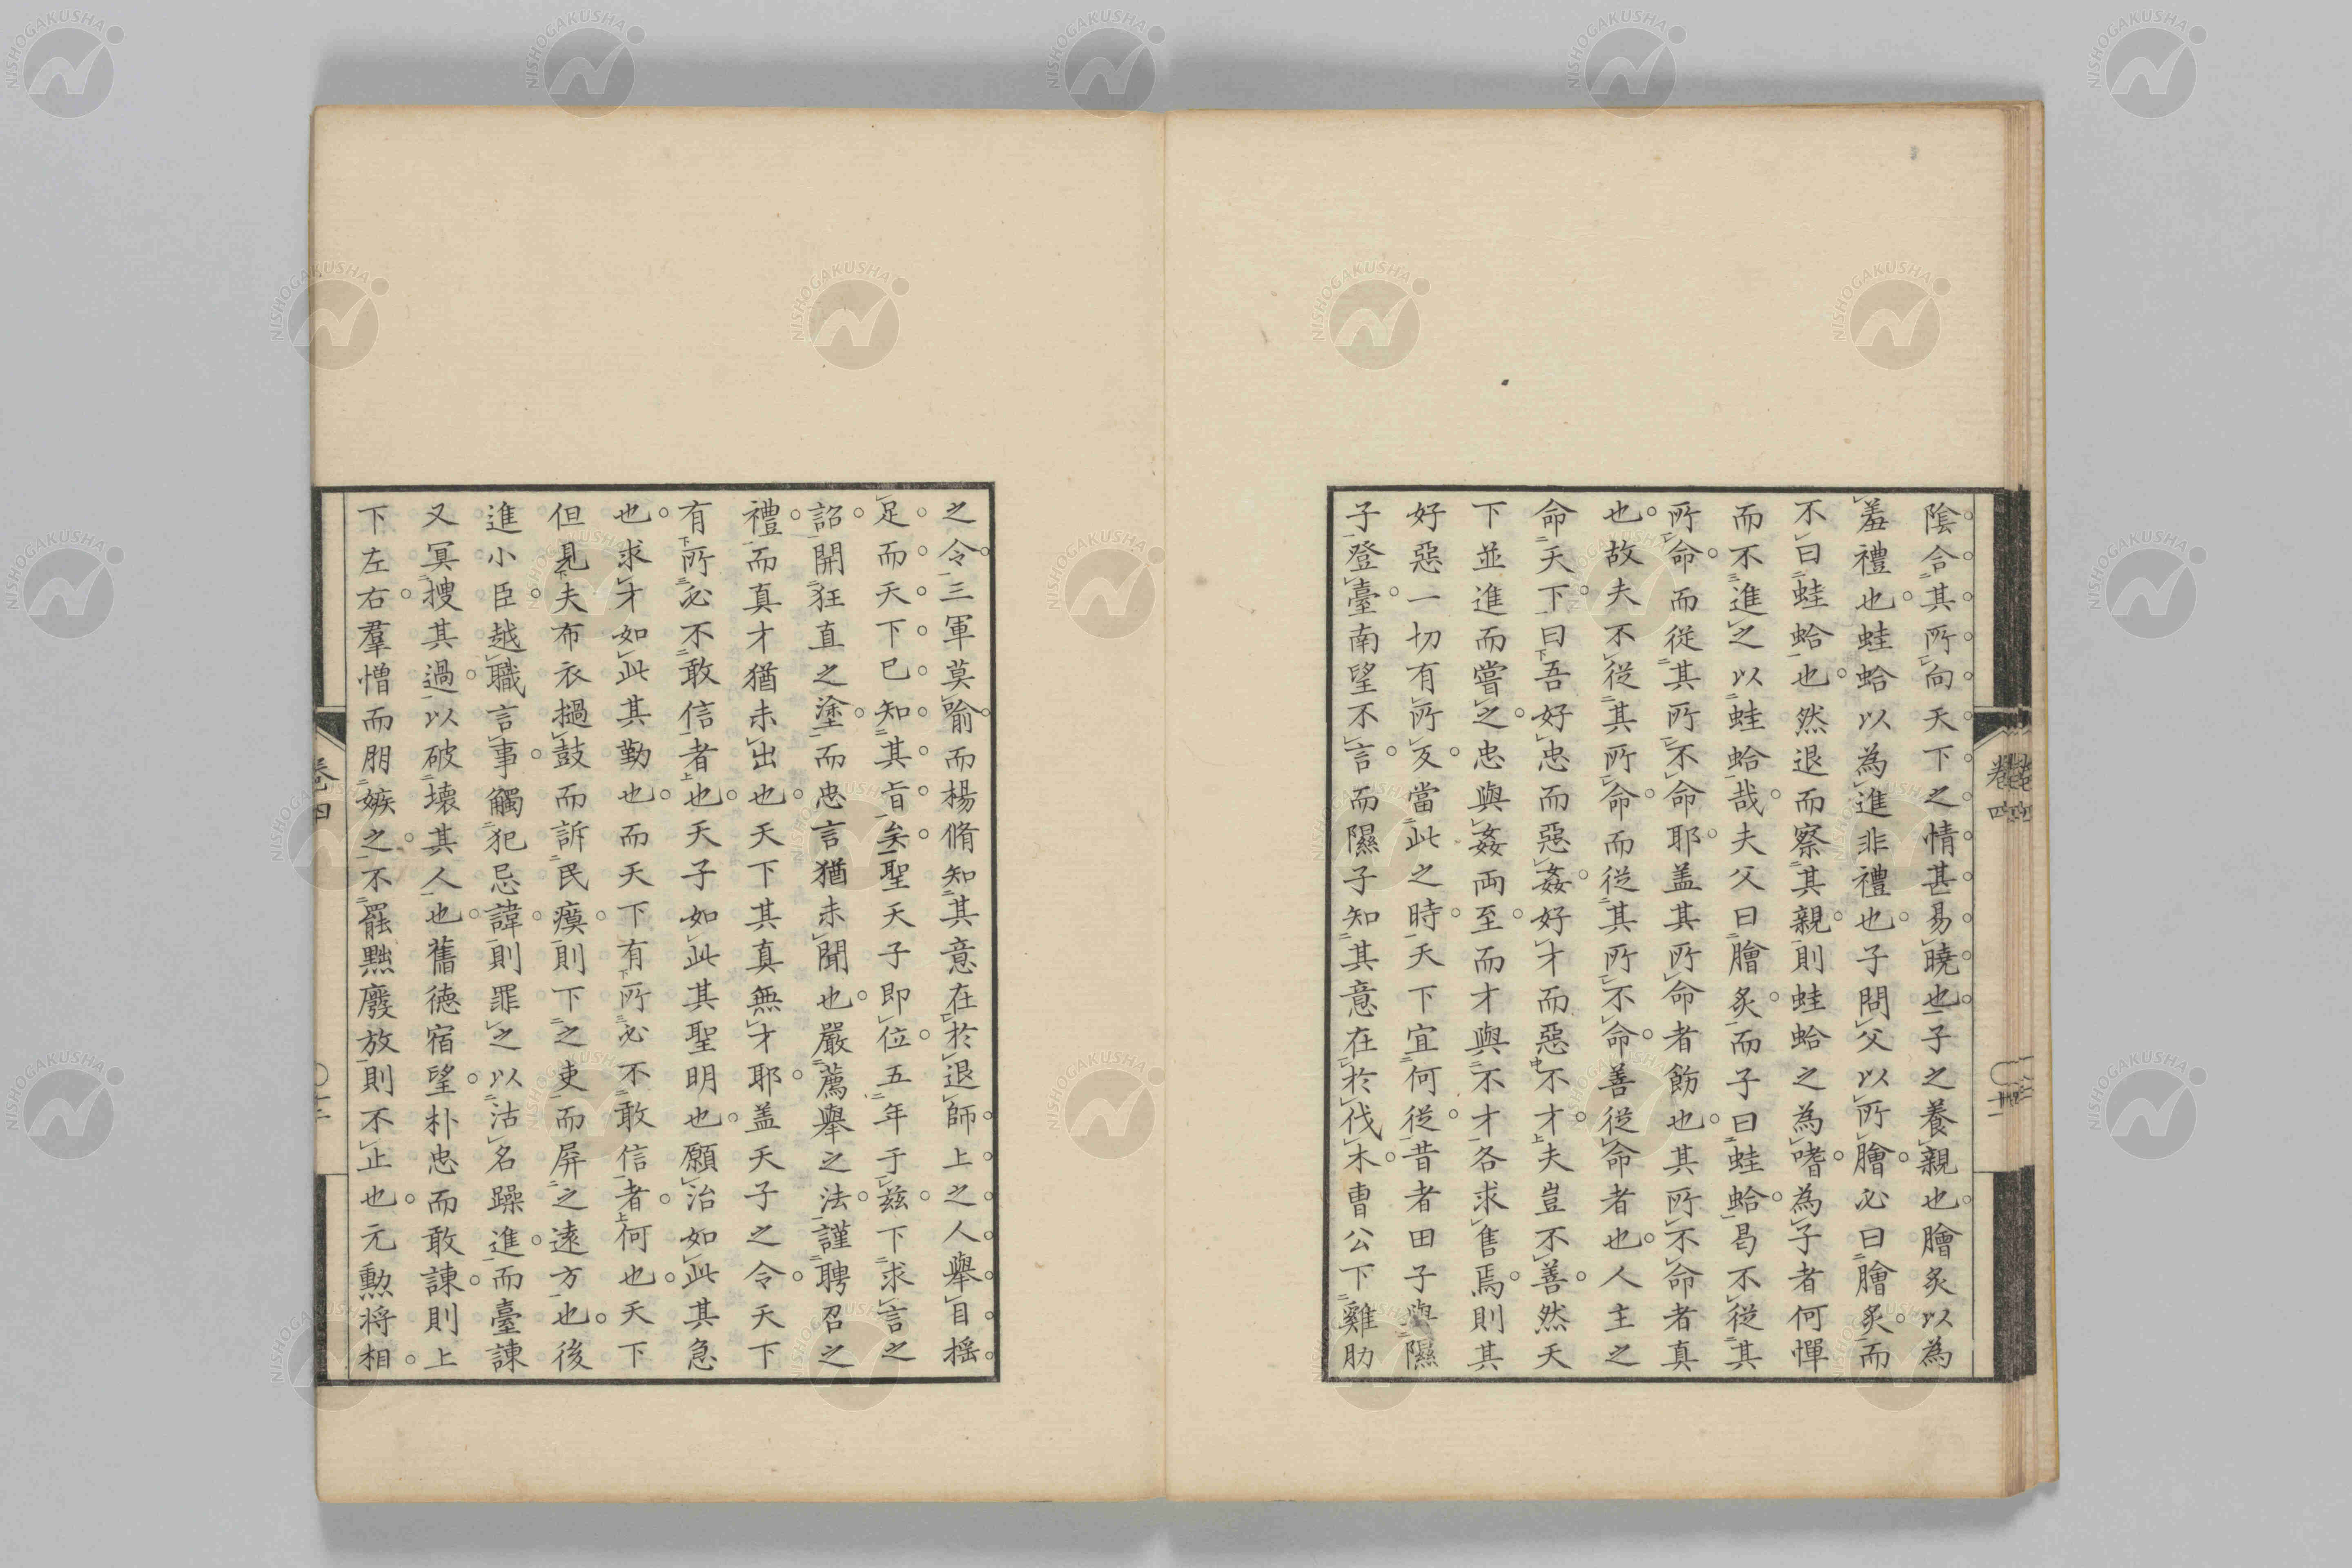 陰合其所向天下之情甚易曉也子之養親也膾炙以為
羞禮也蛙蛤以為進非禮也子問父以所膾必曰膾炙而
不曰蛙蛤也然退而察其親則蛙蛤之為嗜為子者何憚
而不進之以蛙蛤哉夫父曰膾炙而子曰蛙蛤曷不從其
所命而從其所不命耶盖其所命者飭也其所不命者真
也故夫不從其所命而從其所不命善從命者也人主之
命天下曰吾好忠而惡姦好才而惡不才夫豈不善然天
下並進而嘗之忠與姦両至而才與不才各求售焉則其
好惡一切有所反當此之時天下宜何從昔者田子與隰
子登臺南望不言而隰子知其意在於伐木曹公下雞肋
之令三軍莫喻而楊脩知其意在於退師上之人舉目揺
足而天下已知其旨矣聖天子即位五年于玆下求言之
詔開狂直之塗而忠言猶未聞也嚴薦舉之法謹聘召之
禮而真才猶未出也天下其真無才耶盖天子之令天下
有所必不敢信者也天子如此其聖明也願治如此其急
也求才如此其勤也而天下有所必不敢信者何也天下
但見夫布衣撾鼓而訴民瘼則下之吏而屏之遠方也後
進小臣越職言事觸犯忌諱則罪之以沽名躁進而臺諫
又冥搜其過以破壊其人也舊徳宿望朴忠而敢諫則上
下左右羣憎而朋嫉之不罷黜廢放則不止也元勲将相
卷四
卷四
NISHOGAKUSHA